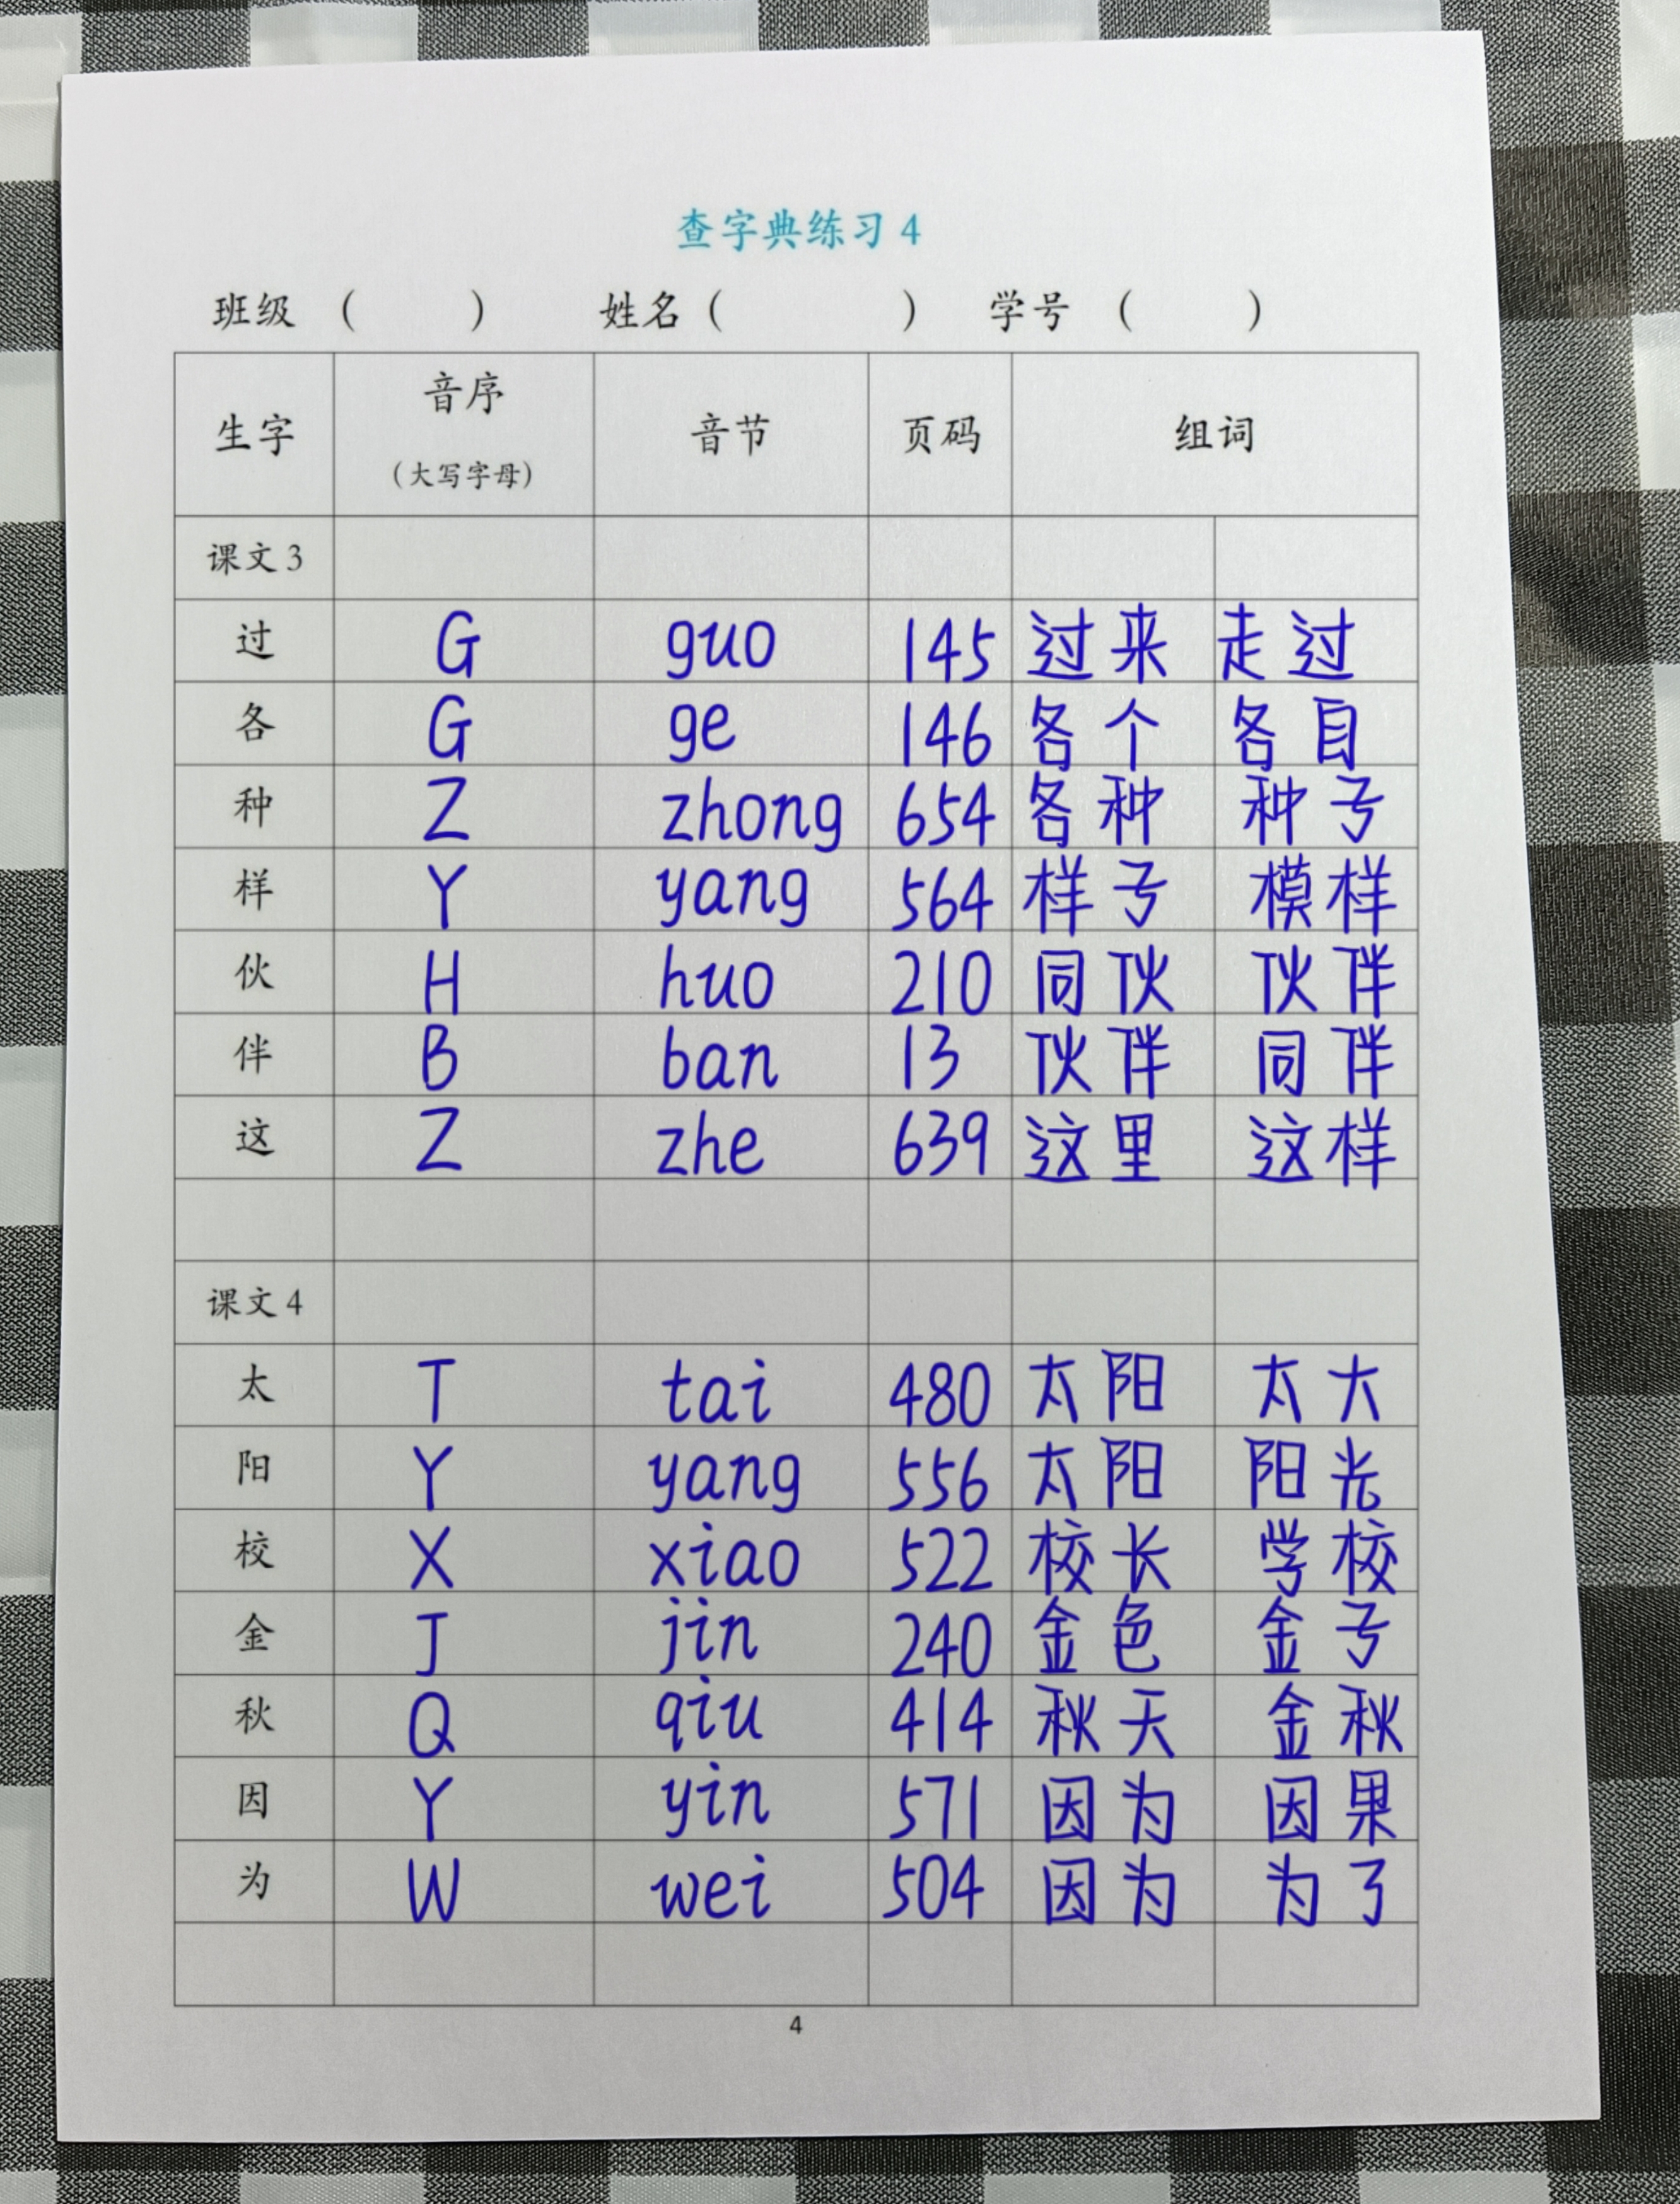 查字典练习 4
班级 （ ） 姓名（ ） 学号 （ ）
生字 音序（大写字母） 音节 页码 组词
课文 3
过 G guo 145 过来 走过
各 G ge 146 各个 各自
种 Z zhong 654 各种 种子
样 Y yang 564 样子 模样
伙 H huo 210 同伙 伙伴
伴 B ban 13 伙伴 同伴
这 Z zhe 639 这里 这样
课文 4
太 T tai 480 太阳 太大
阳 Y yang 556 太阳 阳光
校 X xiao 522 校长 学校
金 J jin 240 金色 金子
秋 Q qiu 414 秋天 金秋
因 Y yin 571 因为 因果
为 W wei 504 因为 为了
4